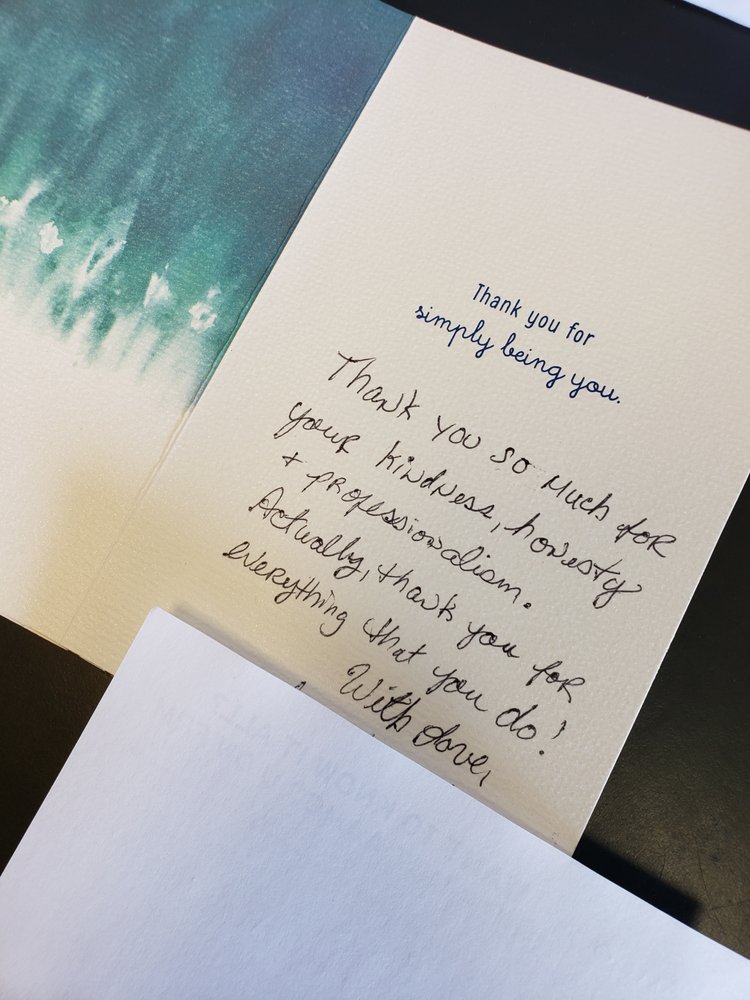 Thank you for
simply being you.
Thank you so much for
your kindness, honesty
+ professionalism.
Actually, thank you for
everything that you do!
With love,